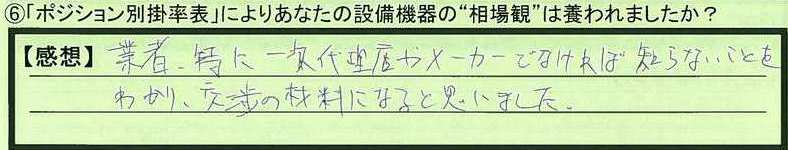 ⑥「ポジション別掛率表」によりあなたの設備機器の“相場観”は養われましたか？
【感想】業者、特に一次代理店やメーカーでなければ知らないことを
わかり、交渉の材料になると思いました。